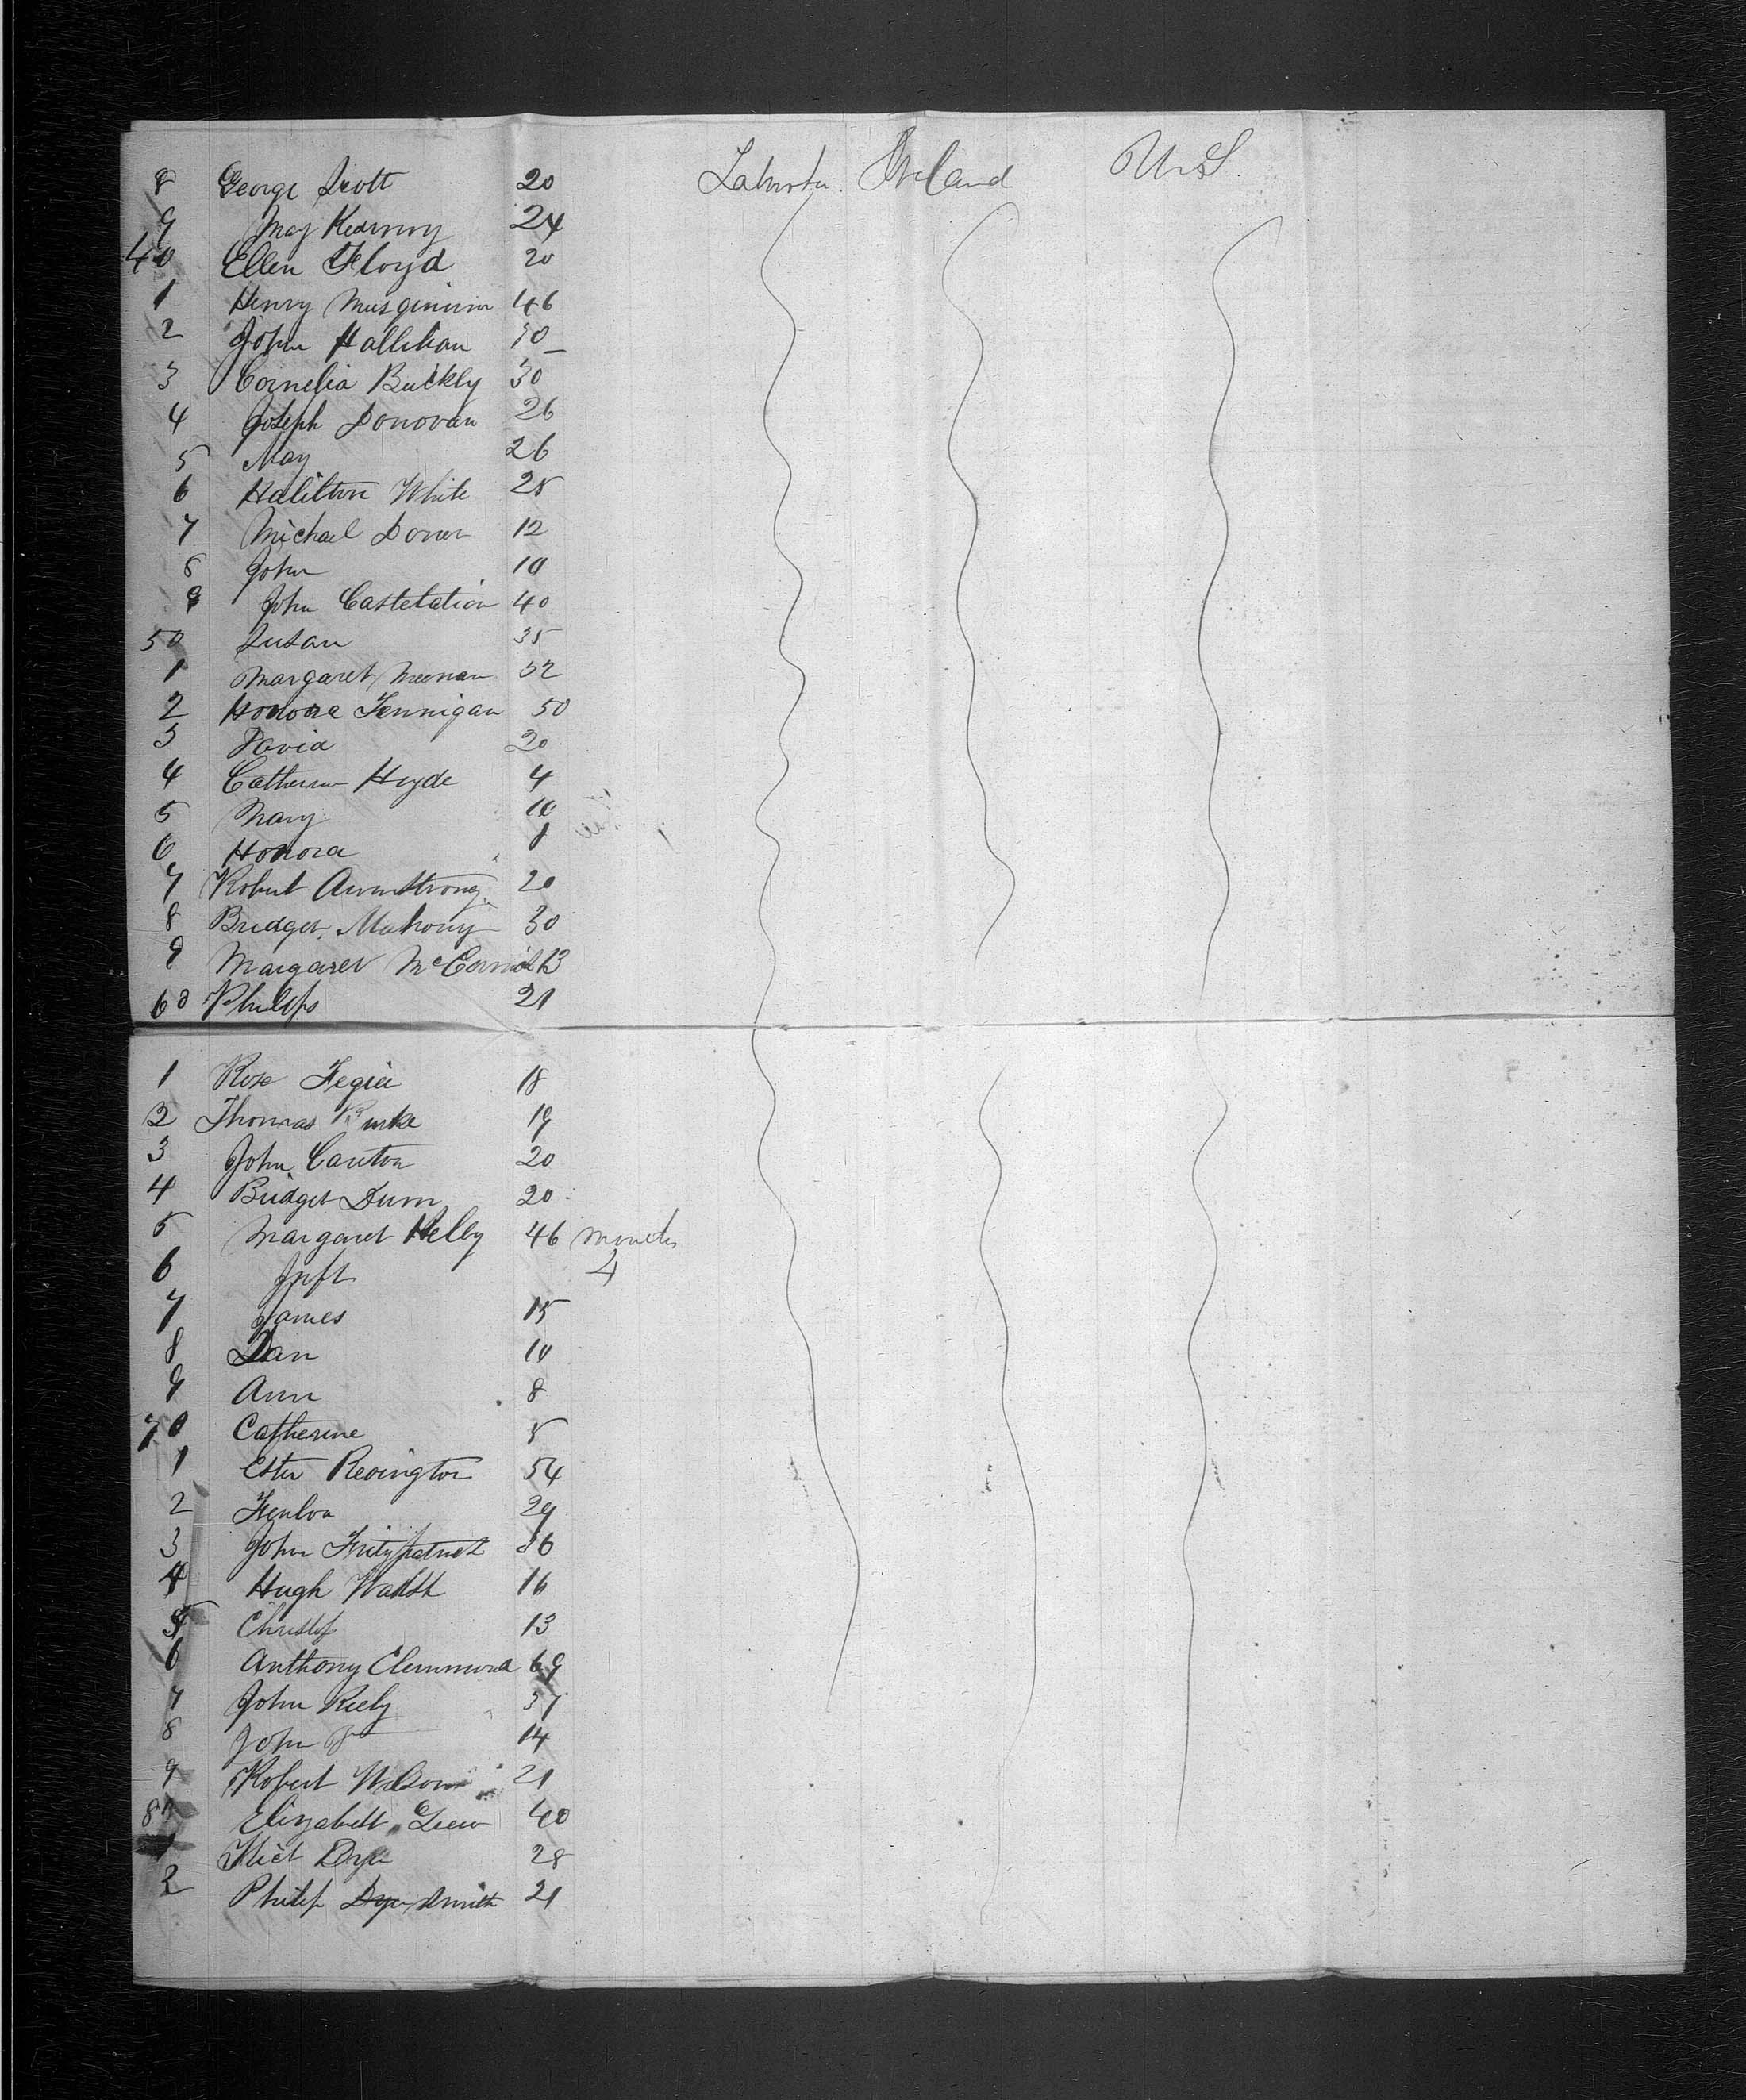 8 George Scott 20 Laborer Ireland U.S.
9 May Kearney 24
40 Ellen Floyd 20
1 Henry 46
2 John Hallihan
3 Cornelia Buckly 30
4 Joseph Donovan 26
5 May 26
6 Halilton White 25
7 Michael 12
8 John 10
9 John 40
50 Susan 35
1 Margaret 32
2 Honora Fennigan 50
3 David 20
4 Catherine Hyde 4
5 Mary 10
6 Honora
7 Robert Armstrong 20
8 Bridget Mahony 30
9 Margaret
60 Philip 21
1 Rose 18
2 Thomas Burke 19
3 John Canton 20
4 Bridget Dunn 20
5 Margaret Kelly 46 months
6 Inft 4
7 James 15
8 Dan 10
9 Ann 8
70 Catherine 5
1 Ester Revington 54
2 29
3 John 36
4 Hugh Walsh 16
5 Christof 13
6 Anthony 69
7 John Riely 37
8 John 14
9 Robert Wilson 21
80 Elizabeth 40
1 28
2 Philip Dyer Smith 21